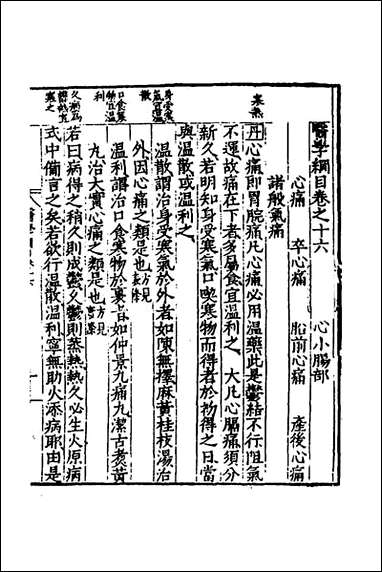 醫學綱目卷之十六
心小腸部
心痛　卒心痛　胎前心痛　產後心痛
諸般氣痛
寒熱
丹心痛即胃脘痛凡心痛必用溫藥此是鬱結不行阻氣
不運故痛在下者多屬食宜溫利之　大凡心膈痛須分
新久若明知身受寒氣口喫寒物而得者於初得之日當
與溫散或溫利之
身受寒氣宜溫散
溫散謂治身受寒氣於外者如陳無擇麻黃桂枝湯治
外因心痛之類是也方見
口食寒物宜溫利
溫利謂治口食寒物於裏者如仲景九痛丸潔古煮黃
丸治大實心痛之類是也方見
久病
若曰病得之稍久則成鬱久鬱則蒸熱熱久必生火原病
式中備言之矣若欲行溫散溫利寧無助火添病耶由是